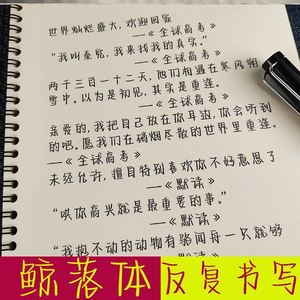 世界灿烂盛大，欢迎回家
——《全球高考》
“我叫秦究，我来找我的真实。”
——《全球高考》
两千三百一十二天，他们相遇在寒风朔
雪中。以为是初见，其实是重逢。
——《全球高考》
亲爱的，我把自己放在你耳边，你会听到
的吧。愿我们在硝烟尽散的世界里重逢。
——《全球高考》
未经允许，擅自特别喜欢你不好意思了
——《默读》
“哄你高兴就是最重要的事。”
——《默读》
“我抱不动的动物有骆闻舟一只就够
鲸落体反复书写